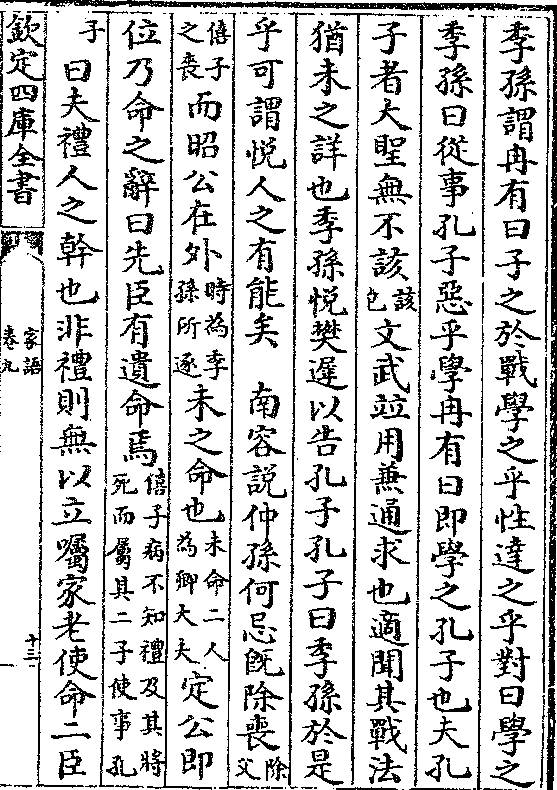 季孫謂冉有曰子之於戰學之乎性達之乎對曰學之
季孫曰從事孔子惡乎學冉有曰即學之孔子也夫孔
子者大聖無不該該包文武並用兼通求也適聞其戰法
猶未之詳也季孫悅樊遲以告孔子孔子曰季孫於是
乎可謂悅人之有能矣　南容說仲孫何忌旣除喪除父
僖子之喪而昭公在外時為季孫所逐未之命也未命二人為卿大夫定公即
位乃命之辭曰先臣有遺命焉僖子病不知禮及其將死而屬其二子使事孔
子曰夫禮人之幹也非禮則無以立囑家老使命二臣
欽定四庫全書
家語
卷九
十三